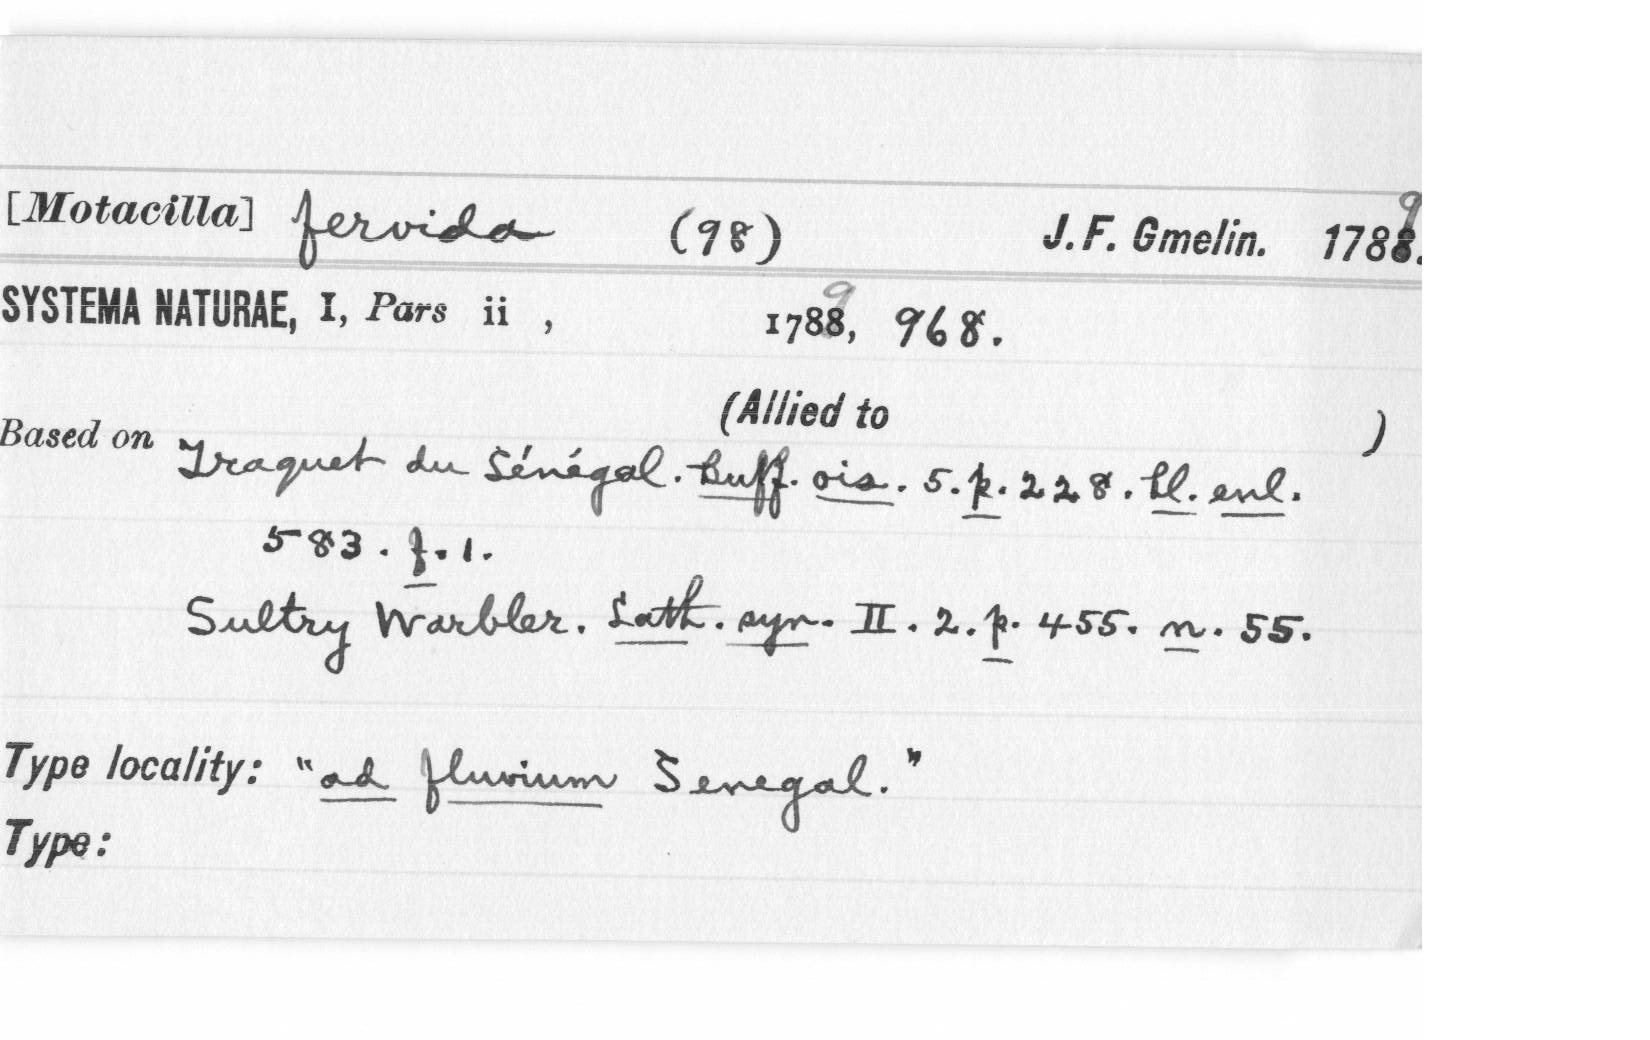 [Motacilla] fervida (98) J. F. Gmelin. 1788. 9
SYSTEMA NATURAE, I, Pars ii , 1788, 9 968.
(Allied to )
Based on Traquet du Sénégal. Buff. ois. 5. p. 228. pl. enl.
583. f. 1.
Sultry Warbler. Lath. syn. II. 2. p. 455. n. 55.
Type locality: "ad fluvium Senegal."
Type: